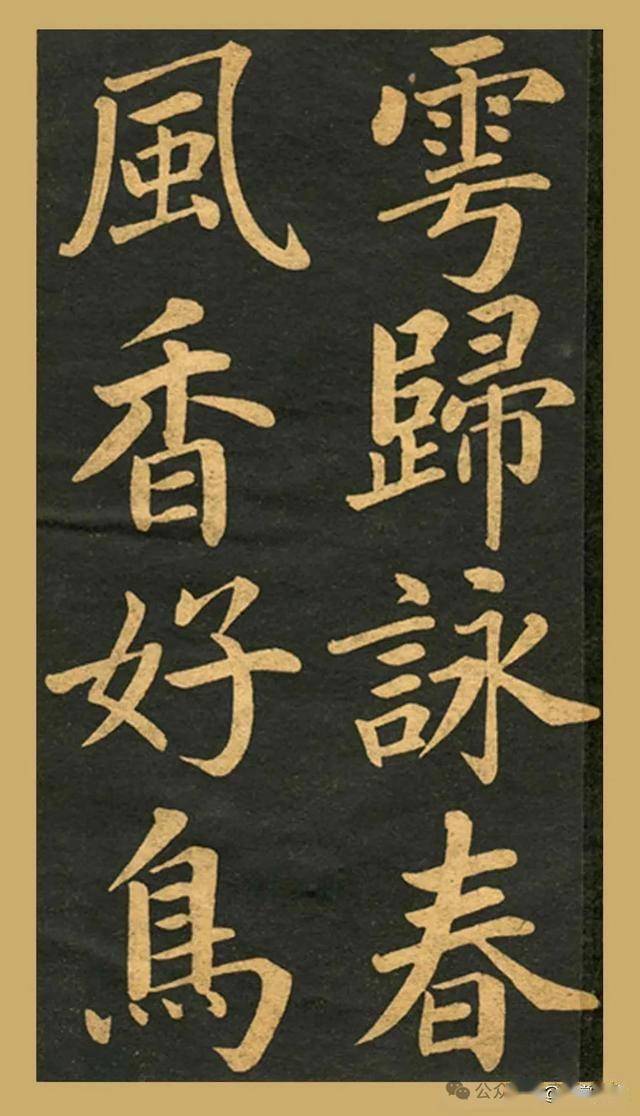 雩歸詠春
風香好鳥
公众